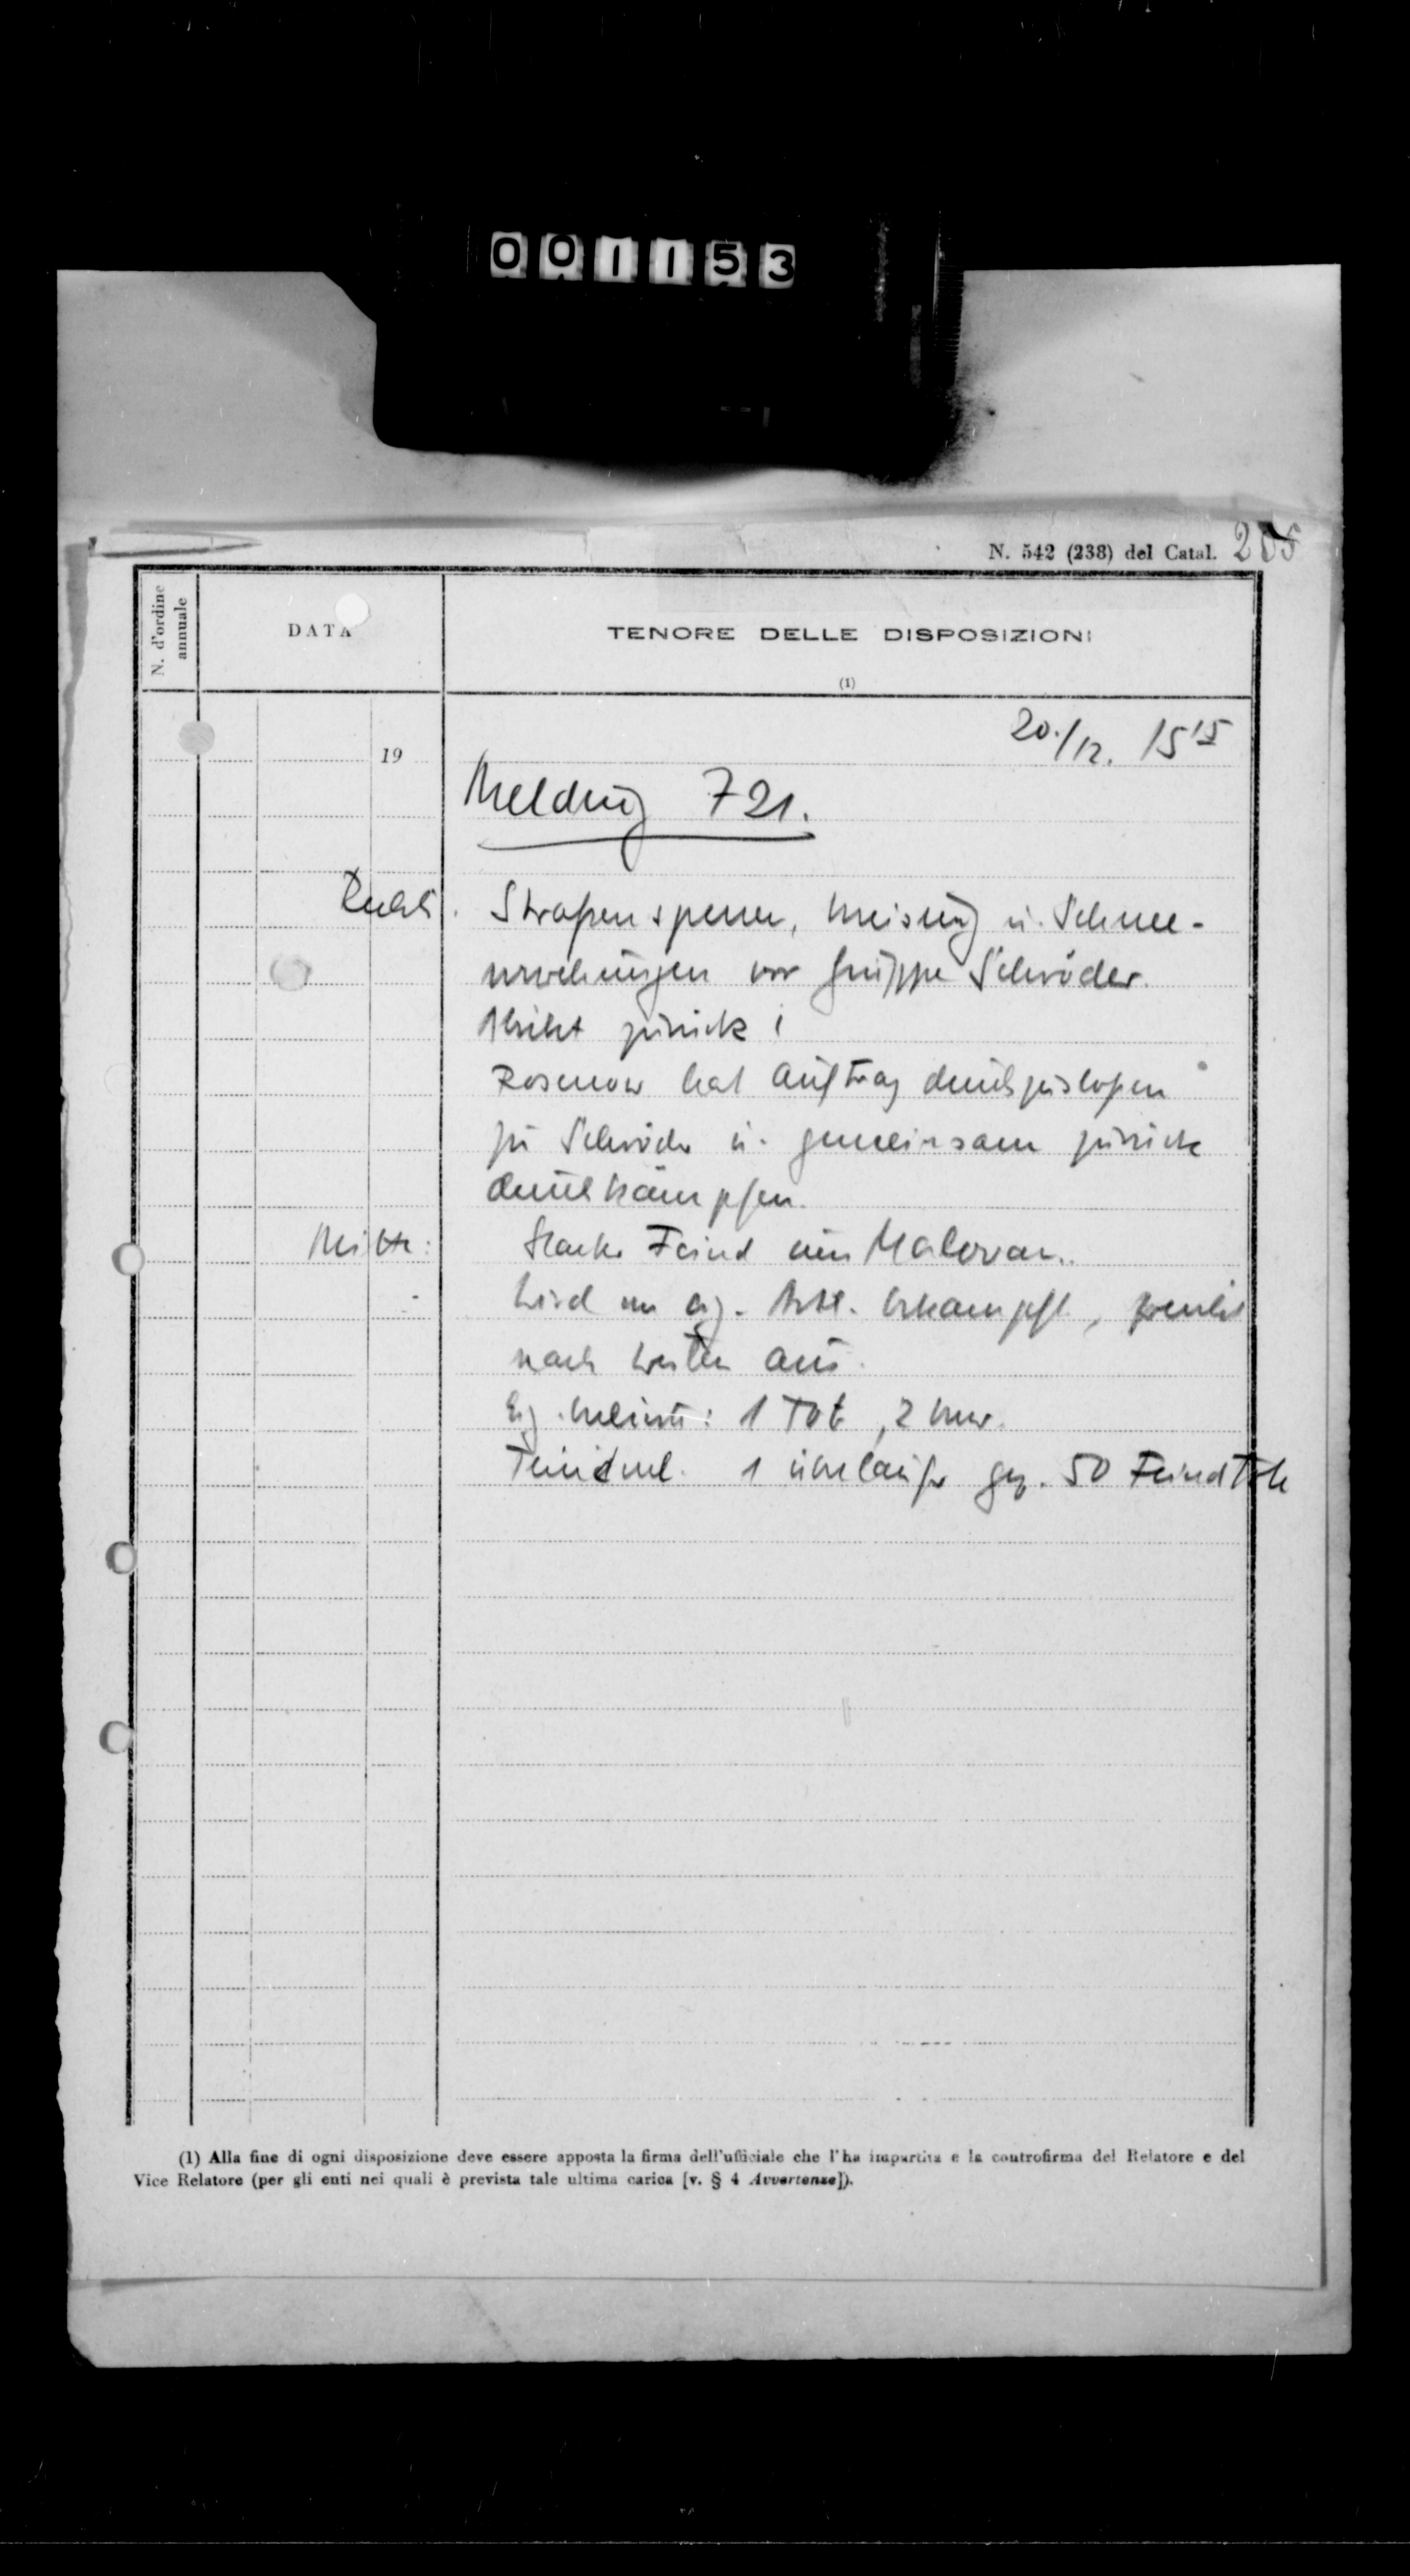 001153
N. 542 (238) del Catal. 205
N. d'ordine annuale
DATA
TENORE DELLE DISPOSIZIONI
(1)
20./12. 15 15
19
Meldung 721.
Rechts. Straßensperren, Minierung u. Schnee-
verwehungen vor Gruppe Schröder.
bleibt zurück!
Rosenow hat Auftrag durchzustoßen
zu Schröder u. gemeinsam zurück
durchkämpfen.
Mitte: Starker Feind um Malovan.
Wird von eig. Art. bekämpft, weicht
nach Westen aus.
Eig. Verluste: 1 Tot, 2 Verw.
Feindverl. 1 Überläufer gez. 50 Feindtote
(1) Alla fine di ogni disposizione deve essere apposta la firma dell'ufficiale che l'ha impartita e la controfirma del Relatore e del
Vice Relatore (per gli enti nei quali è prevista tale ultima carica [v. § 4 Avvertenze]).